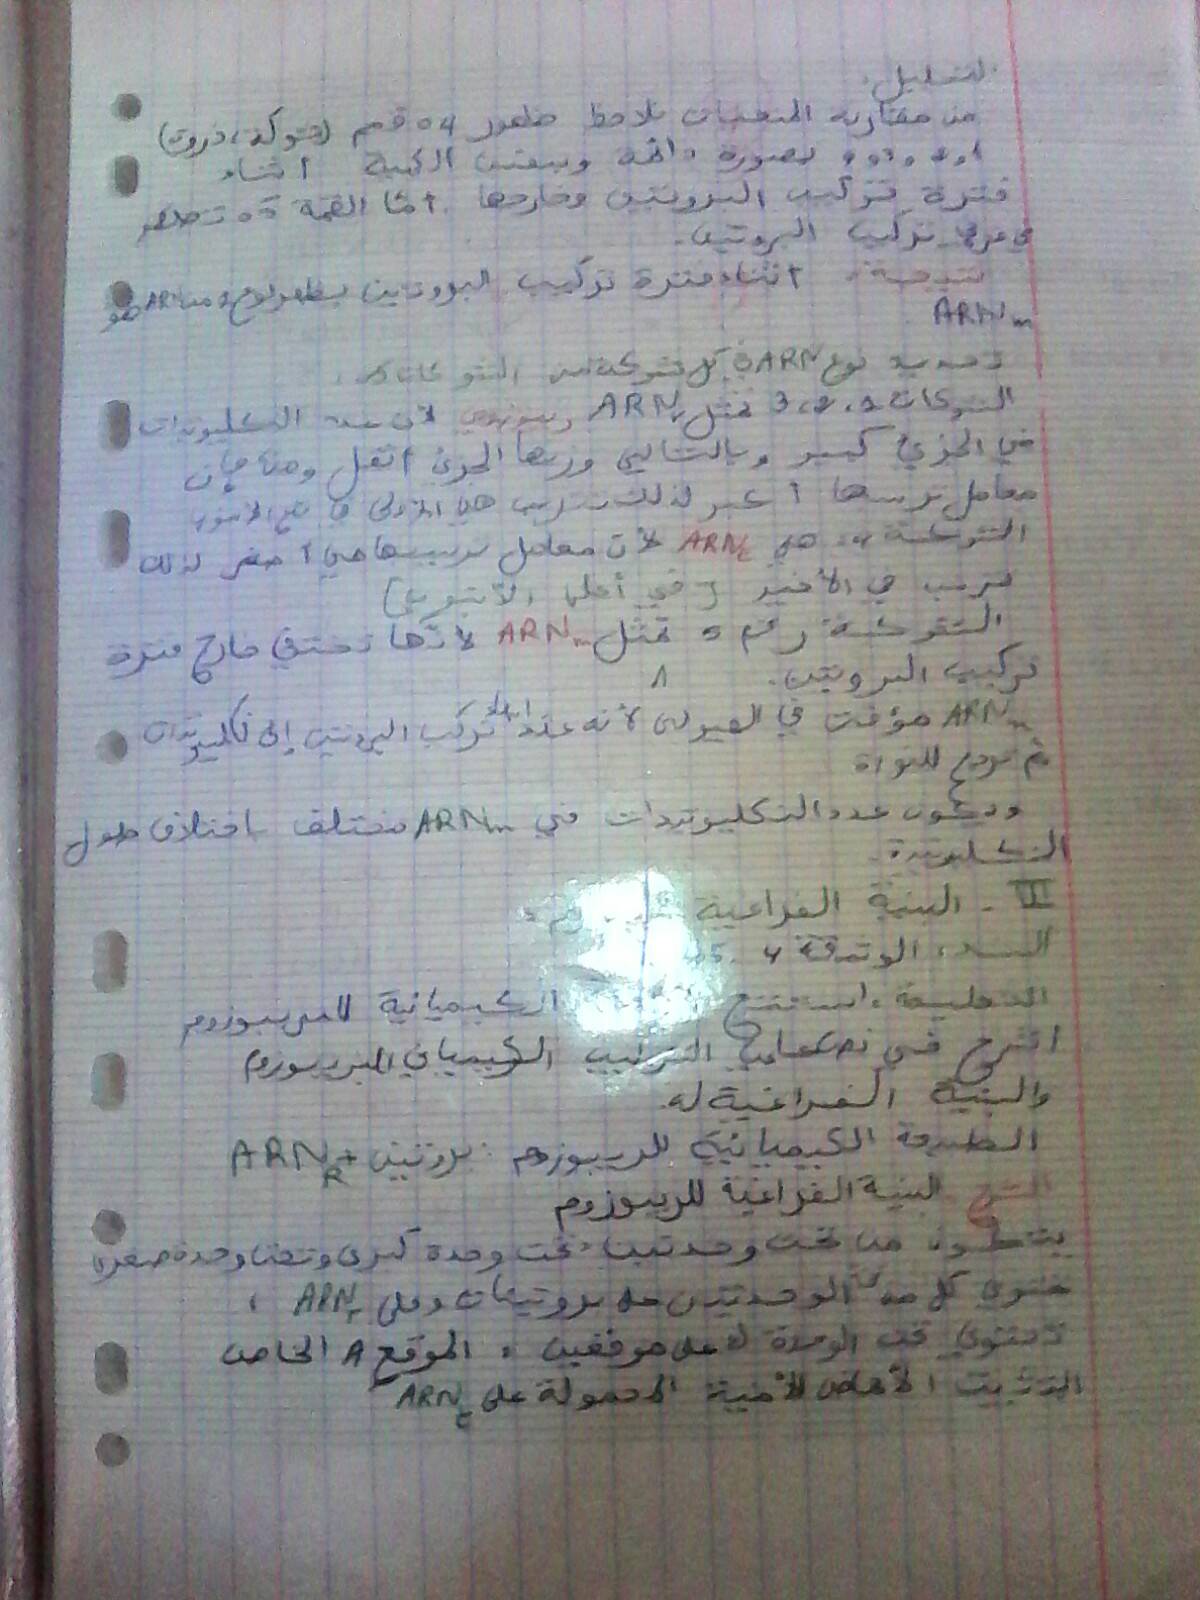 التحليل:
من مقارنة المنحنيات نلاحظ ظهور 04 قمم (شوكة، ذروة)
بصورة دائمة وبنفس الكمية أثناء
فترة تركيب البروتين وخارجها. أما القمة 05 تظهر
في تركيب البروتين.
نتيجة: أثناء فترة تركيب البروتين يظهر نوع من ARN هو
ARNm
تحديد نوع ARN كل شوكة من الشوكات:
الشوكات 1، 2، 3 تمثل ARNr ريبوزومي لأن عدد النكليوتيدات
في الجزيئ كبير وبالتالي وزنها الجزئ أثقل ومنه فإن
معامل ترسبها أكبر لذلك تترسب هي الأولى
الشوكة 4: هي ARNt لأن معامل ترسيبها هي أصغر لذلك
ترسب في الأخير (في أعلى الأنبوب)
الشوكة رقم 5 تمثل ARNm لأنها تختفي خارج فترة
تركيب البروتين.
ARNm مؤقت في الهيولى لأنه عند انتهاء تركيب البروتين إلى نكليوتيدات
ثم ترجع للنواة
ويكون عدد النكليوتيدات في ARNm مختلف باختلاف طول
VII - البنية الفراغية
السند: الوثيقة 4، 5
التعليمة: استنتج الكيميائية للريبوزوم
اشرح في نص علمي التركيب الكيميائي للريبوزوم
والبنية الفراغية له.
الطبيعة الكيميائية للريبوزوم: بروتين + ARNR
الشرح البنية الفراغية للريبوزوم
يتكون من تحت وحدتين: تحت وحدة كبرى وتحت وحدة صغرى
تحتوي كل من الوحدتين على بروتينات وعلى ARNr،
تحتوي تحت الوحدة على موقعين: الموقع A الخاص
التثبيت الأحماض الأمينية المحمولة على ARNt